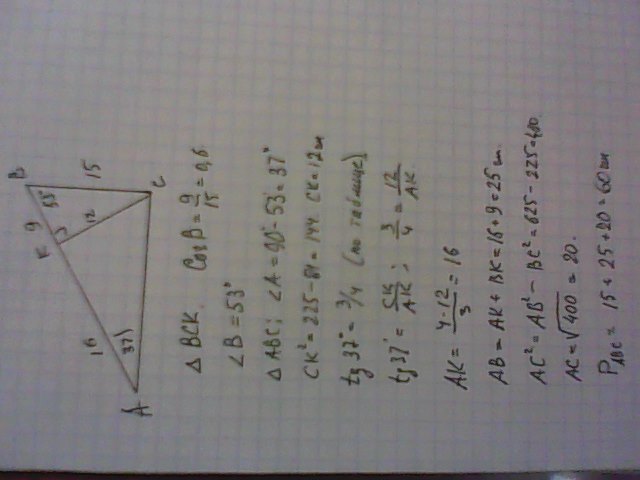 B
K 9 53° 15
3 12
16 C
37°
A
△ BCK. Cos B = 9/15 = 0,6.
∠B = 53°
△ ABC; ∠A = 90° - 53° = 37°
CK² = 225 - 81 = 144 CK = 12 см
tg 37° = 3/4 (по таблице)
tg 37° = CK/AK; 3/4 = 12/AK.
AK = 4·12/3 = 16
AB = AK + BK = 16 + 9 = 25 см.
AC² = AB² - BC² = 625 - 225 = 400.
AC = √400 = 20.
P ABC = 15 + 25 + 20 = 60 см